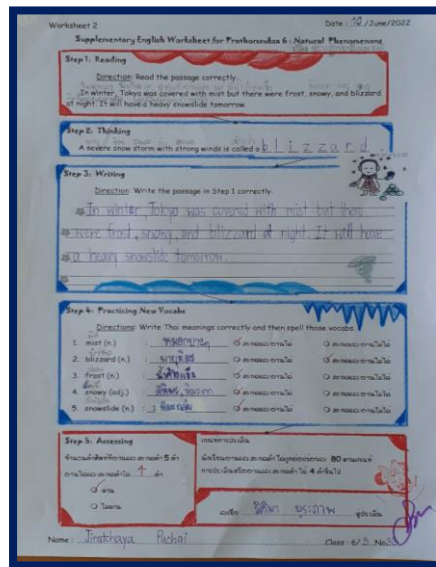 Worksheet 2
Date : 10 /June/2022
Supplementary English Worksheet for Prathomsuksa 6 : Natural Phenomenons
Step 1: Reading
Direction: Read the passage correctly.
In winter, Tokyo was covered with mist but there were frost, snowy, and blizzard
at night. It will have a heavy snowslide tomorrow
Step 2: Thinking
A severe snow storm with strong winds is called a b l i z z a r d .
Step 3: Writing
Direction: Write the passage in Step 1 correctly.
In winter, Tokyo was covered with mist but there
were frost, snowy, and blizzard at night. It will have
a heavy snowslide tomorrow.
Step 4: Practicing New Vocabs
Directions: Write Thai meanings correctly and then spell those vocabs.
1. mist (n.) : หมอกบางๆ สะกดและอ่านได้ สะกดและอ่านไม่ได้
2. blizzard (n.) : พายุหิมะ สะกดและอ่านได้ สะกดและอ่านไม่ได้
3. frost (n.) : น้ำค้างแข็ง สะกดและอ่านได้ สะกดและอ่านไม่ได้
4. snowy (adj.) : สะกดและอ่านได้ สะกดและอ่านไม่ได้
5. snowslide (n.) : หิมะถล่ม สะกดและอ่านได้ สะกดและอ่านไม่ได้
Step 5: Assessing
จำนวนคำศัพท์ที่อ่านและสะกดคำ 5 คำ
อ่านได้และสะกดคำได้ 4 คำ
ผ่าน
ไม่ผ่าน
เกณฑ์การประเมิน
นักเรียนอ่านและสะกดคำได้ถูกต้องร้อยละ 80 ผ่านเกณฑ์
การประเมินหรืออ่านและสะกดคำได้ 4 คำขึ้นไป
ลงชื่อ ผู้ประเมิน
Name : Jiratchaya Puchai
Class : 6/3 No